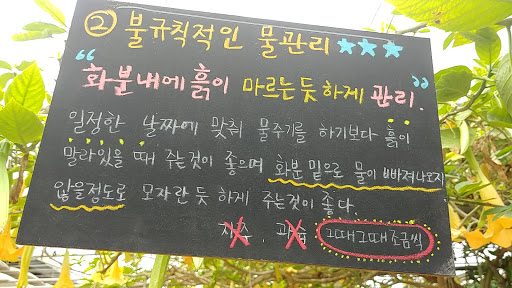 ② 불규칙적인 물관리 ★★★
“화분내에 흙이 마르는듯하게 관리.”
일정한 날짜에 맞춰 물주기를 하기보다 흙이
말라있을 때 주는것이 좋으며 화분 밑으로 물이 빠져나오지
않을정도로 모자란 듯 하게 주는것이 좋다.
자주, 과습 그때그때 조금씩